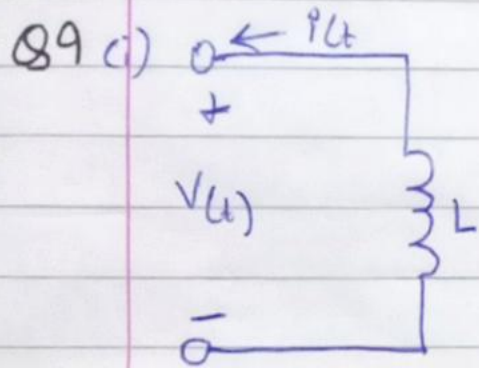 Q9 (i) i(t
+
V(t)
L
-